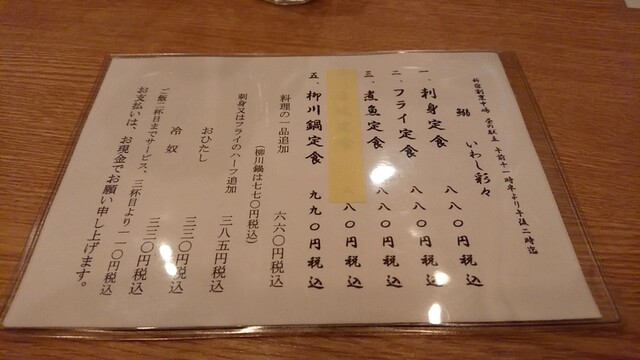 新宿割烹中嶋 当店献立 午前十一時半より午後二時迄
鰯 いわし彩々
一、刺身定食 八八〇円税込
二、フライ定食 八八〇円税込
三、煮魚定食 八八〇円税込
八八〇円税込
五、柳川鍋定食 九九〇円税込
料理の一品追加 六六〇円税込
(柳川鍋は七七〇円税込)
刺身又はフライのハーフ追加 三八五円税込
おひたし 三三〇円税込
冷奴 三三〇円税込
ご飯二杯目までサービス、三杯目より一一〇円税込
お支払いは、お現金でお願い申し上げます。